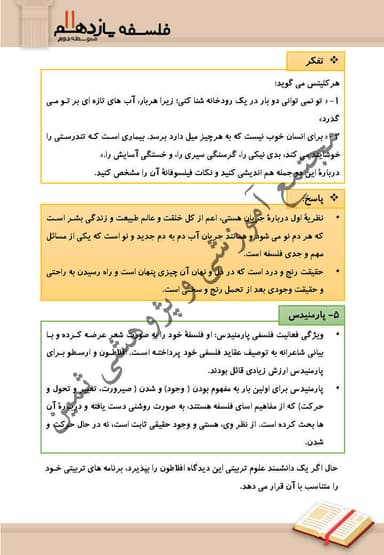 فلسفه یازدهم
متوسطه دوم
❖ تفکر
هرکلیتس می گوید:
1- « تو نمی توانی دو بار در یک رودخانه شنا کنی؛ زیرا هربار، آب های تازه ای بر تو می
گذرد»
2- « برای انسان خوب نیست که به هرچیز میل دارد برسد. بیماری است که تندرستی را
خوشایند می کند، بدی نیکی را، گرسنگی سیری را، و خستگی آسایش را.»
دربارهٔ این دو جمله هم اندیشی کنید و نکات فیلسوفانهٔ آن را مشخص کنید.
❖ پاسخ:
• نظریهٔ اول دربارهٔ جریان هستی، اعم از کل خلقت و عالم طبیعت و زندگی بشر است
که هر دم نو می شود و همانند جریان آب دم به دم جدید و نو است که یکی از مسائل
مهم و جدی فلسفه است.
• حقیقت رنج و درد است که در دل و نهان آن چیزی پنهان است و راه رسیدن به راحتی
و حقیقت وجودی بعد از تحمل رنج و سختی است.
5- پارمنیدس
• ویژگی فعالیت فلسفی پارمنیدس: او فلسفهٔ خود را به صورت شعر عرضه کرده و با
بیانی شاعرانه به توصیف عقاید فلسفی خود پرداخته است. افلاطون و ارسطو برای
پارمنیدس ارزش زیادی قائل بودند.
• پارمنیدس برای اولین بار به مفهوم بودن ( وجود) و شدن ( صیرورت، تغییر و تحول و
حرکت) که از مفاهیم اسای فلسفه هستند، به صورت روشنی دست یافته و دربارهٔ آن
ها بحث کرده است. از نظر وی، هستی و وجود حقیقی ثابت است، نه در حال حرکت و
شدن.
حال اگر یک دانشمند علوم تربیتی این دیدگاه افلاطون را بپذیرد، برنامه های تربیتی خود
را متناسب با آن قرار می دهد.
مجتمع آموزشی و پژوهشی